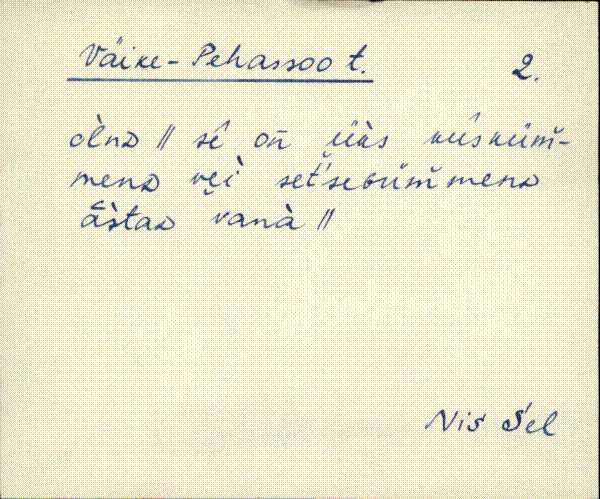 Väike-Pehassoo t. 2.
òlnᴅ || sê on̄ üùs kuì̮sküm̆-
menᴅ veì̬ set̆'seʙüm̆menᴅ
āstaᴅ vanà ||
Nis Sel